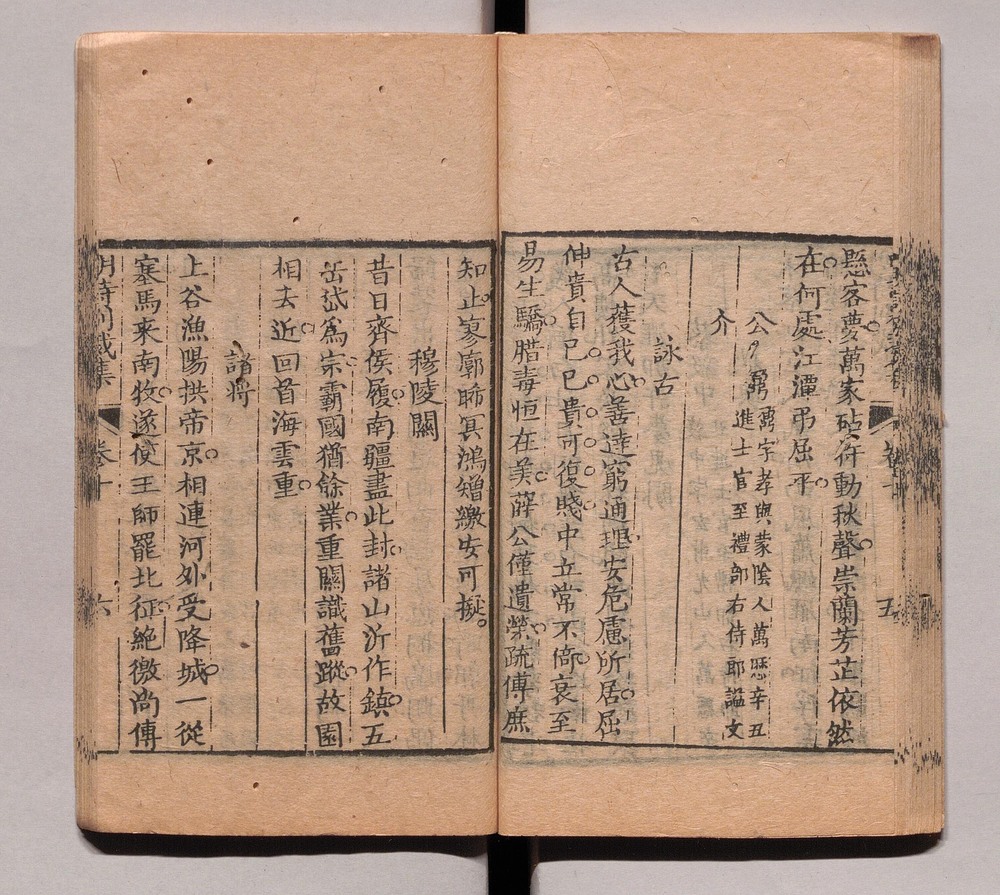 懸客夢萬家砧杵動秋聲崇蘭芳芷依然
在何處江潭弔屈平
公鼐 鼐字孝與蒙陰人萬曆辛丑
進士官至禮部右侍郎謚文
介
詠古
古人獲我心善達窮通理安危慮所居屈
伸貴自已已貴可復賤中立常不倚哀至
易生驕腊毒恒在美薛公僅遺榮疏傅庶
知止寥廓睎冥鴻矰繳安可擬
穆陵關
昔日齊侯履南疆盡此封諸山沂作鎮五
岳岱爲宗霸國猶餘業重關識舊蹤故園
相去近回首海雲重
諸將
上谷漁陽拱帝京相連河外受降城一從
塞馬來南牧遂使王師罷北征絶徼尚傳
明詩別裁集 卷十 六
五